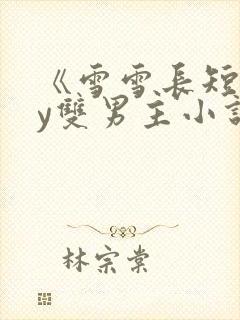 《雪雪長短
y雙男主小
林宗棠